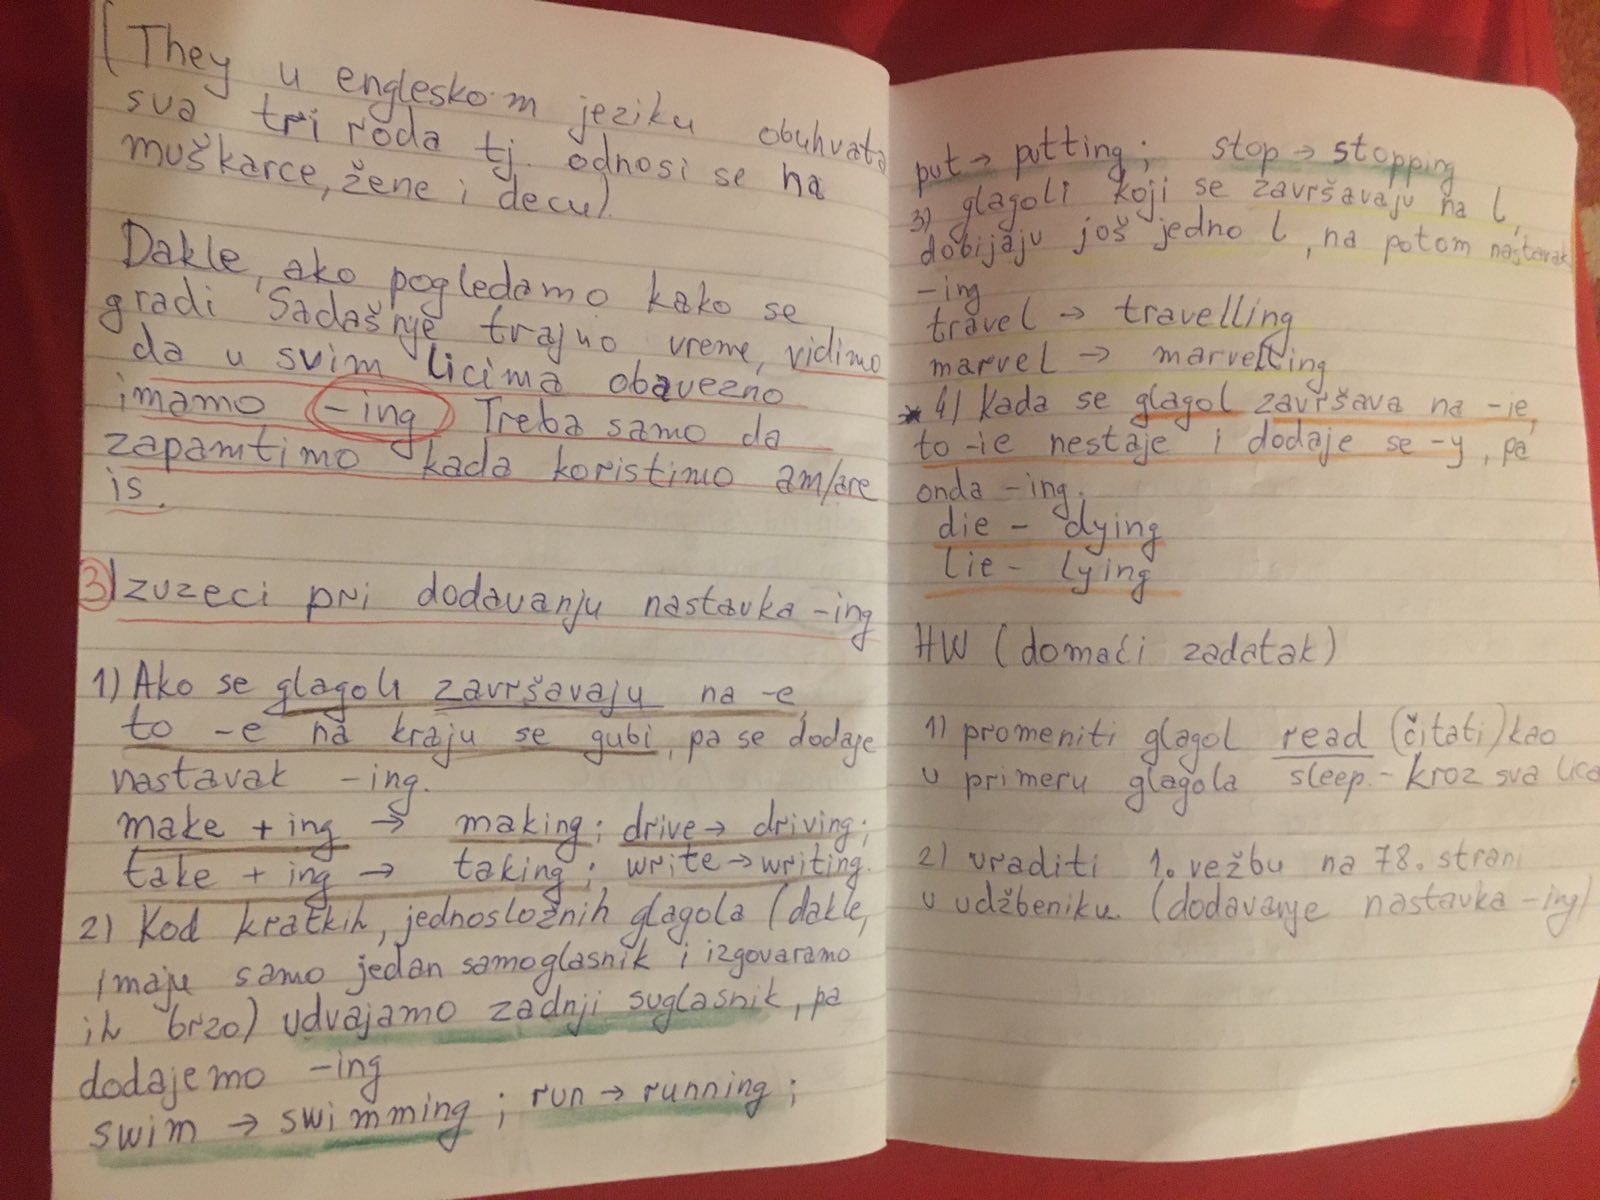 (They u engleskom jeziku obuhvata
sva tri roda tj. odnosi se na
muškarce, žene i decu).
Dakle, ako pogledamo kako se
gradi Sadašnje trajno vreme, vidimo
da u svim licima obavezno
imamo -ing Treba samo da
zapamtimo kada koristimo am/are
is.
3) Izuzeci pri dodavanju nastavka -ing
1) Ako se glagoli završavaju na -e,
to -e na kraju se gubi, pa se dodaje
nastavak -ing.
make + ing → making; drive → driving;
take + ing → taking; write → writing.
2) Kod kratkih, jednosložnih glagola (dakle,
imaju samo jedan samoglasnik i izgovaramo
ih brzo) udvajamo zadnji suglasnik, pa
dodajemo -ing
swim → swimming; run → running;
put → putting; stop → stopping
3) glagoli koji se završavaju na l,
dobijaju još jedno l, na potom nastavak
-ing
travel → travelling
marvel → marvelling
* 4) Kada se glagol završava na -ie,
to -ie nestaje i dodaje se -y, pa
onda -ing.
die - dying
lie - lying
HW (domaći zadatak)
1) promeniti glagol read (čitati) kao
u primeru glagola sleep - kroz sva lica
2) uraditi 1. vežbu na 78. strani
u udžbeniku. (dodavanje nastavka -ing)